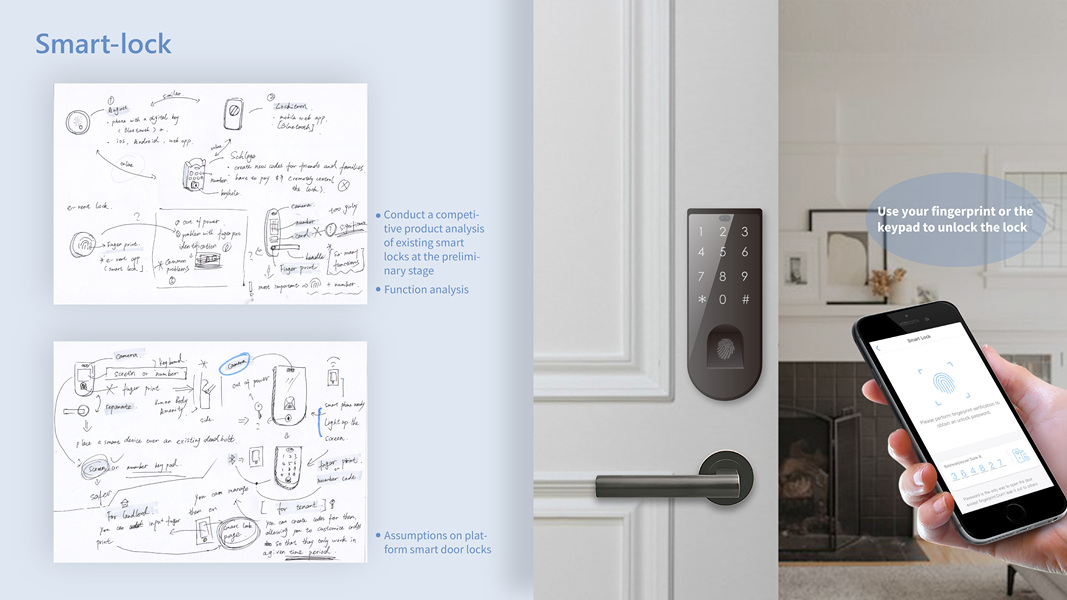 Smart-lock
①
August
similar
②
Lockitron
- phone with a digital key
(Bluetooth)
- mobile web app.
[Bluetooth]
- ios, Android, web app.
online
Schlage
- create new codes for friends and families.
number
- have to pay $9 (remotely control
the lock).
keyhole
lock
?
camera
too ugly
① out of power
number
② problem with finger print
identification
Finger print
handle
so many
functions
Common
problems
Finger print
most important
+ number
• Conduct a competi-
tive product analysis
of existing smart
locks at the prelimi-
nary stage
• Function analysis
Camera
keyboard
screen or number
finger print
Camera
out of power
side
place a smart device over an existing deadbolt
smart phone ready
Light up the
screen
screen or number key pad.
safer
finger print
number code
For landlord
you can manage
them on
[for tenant]
you can input finger
print
smart lab
page
you can create codes for them,
allowing you to customize codes
so that they only work in
a given time period
• Assumptions on plat-
form smart door locks
1 2 3
4 5 6
7 8 9
* 0 #
Use your fingerprint or the
keypad to unlock the lock
Smart Lock
Please perform fingerprint verification to
obtain an unlock password.
364827
Password is the only way to open the door